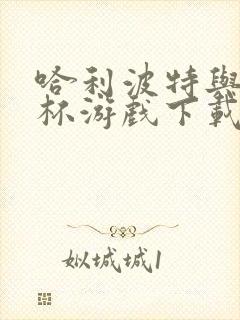 哈利波特與
杯游戲下載
姒城城1